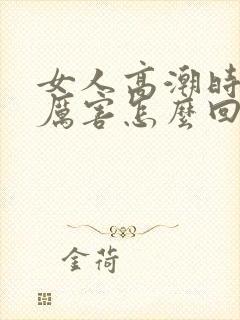 女人高潮时
厲害怎麼回
金荷